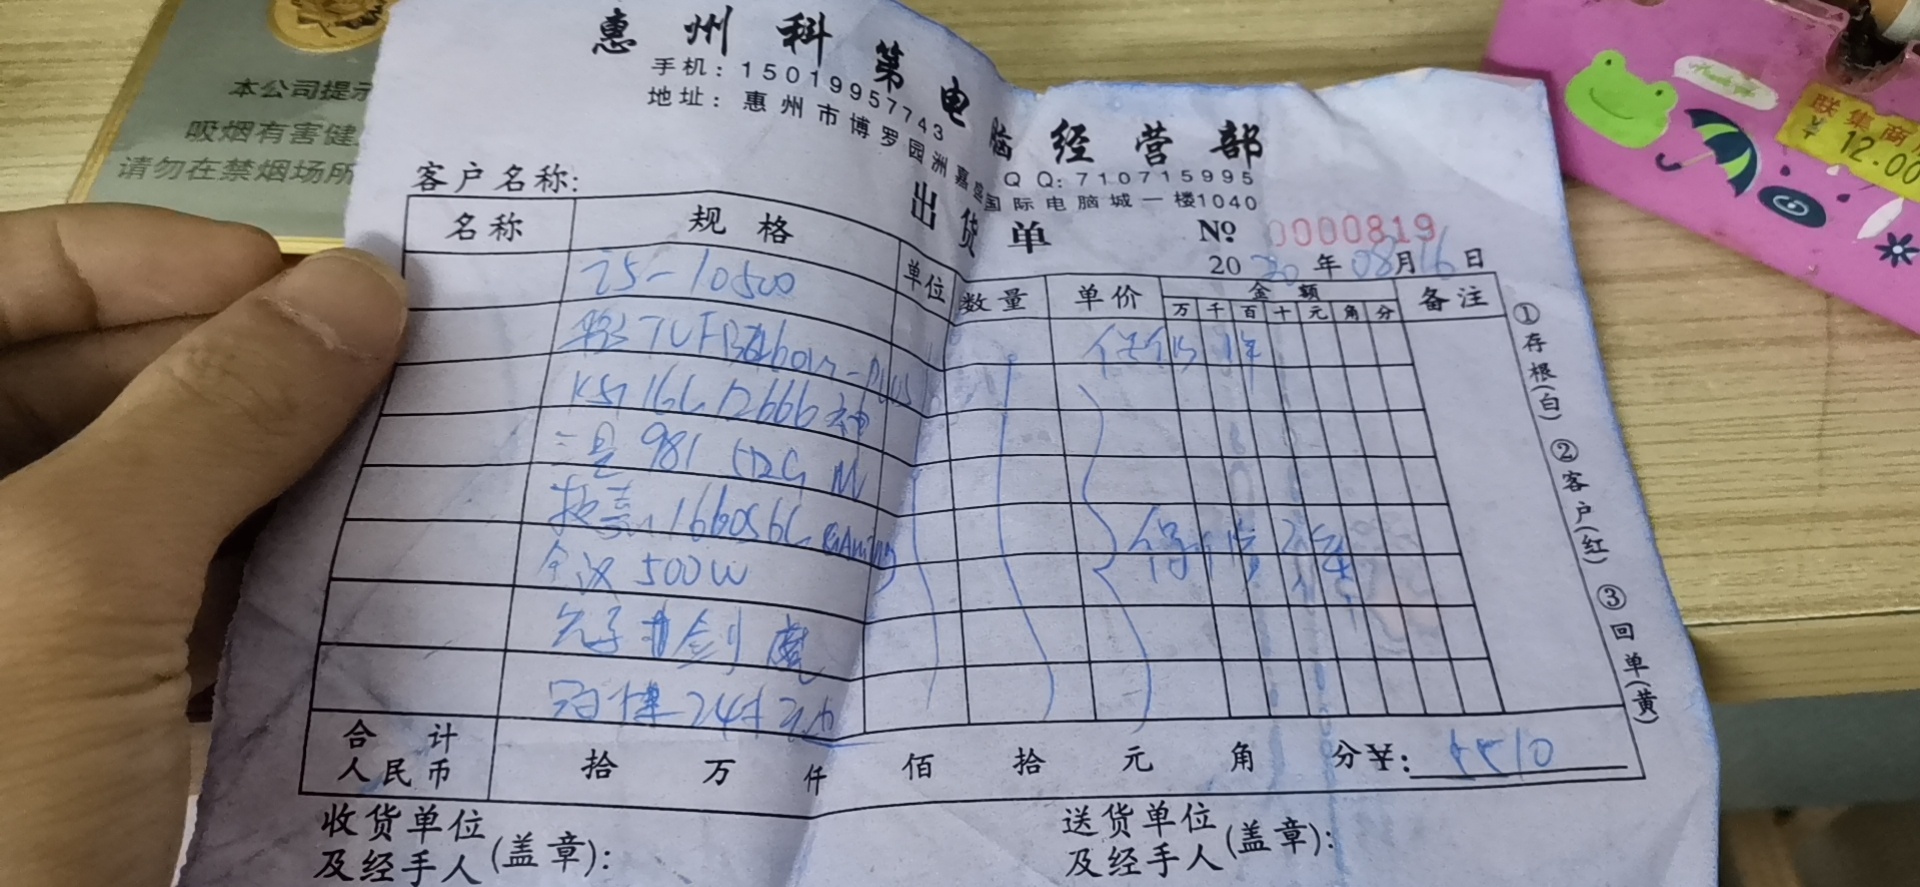 惠州科第电脑经营部
手机：15019957743 QQ：710715995
地址：惠州市博罗园洲嘉盛国际电脑城一楼1040
出货单
客户名称：
№ 0000819
2020年08月16日
名称 规格 单位 数量 单价 金额 备注
万 千 百 十 元 角 分
i5-10500
TUF B460M-PLUS
16G 2666
三星 981 512G M
1660S 6G GAMING
全汉 500W
24寸
保 年
合计人民币 拾 万 仟 佰 拾 元 角 分 ¥：5510
收货单位及经手人(盖章)：
送货单位及经手人(盖章)：
①存根(白) ②客户(红) ③回单(黄)
本公司提示
吸烟有害健
请勿在禁烟场所
联集商
¥12.00